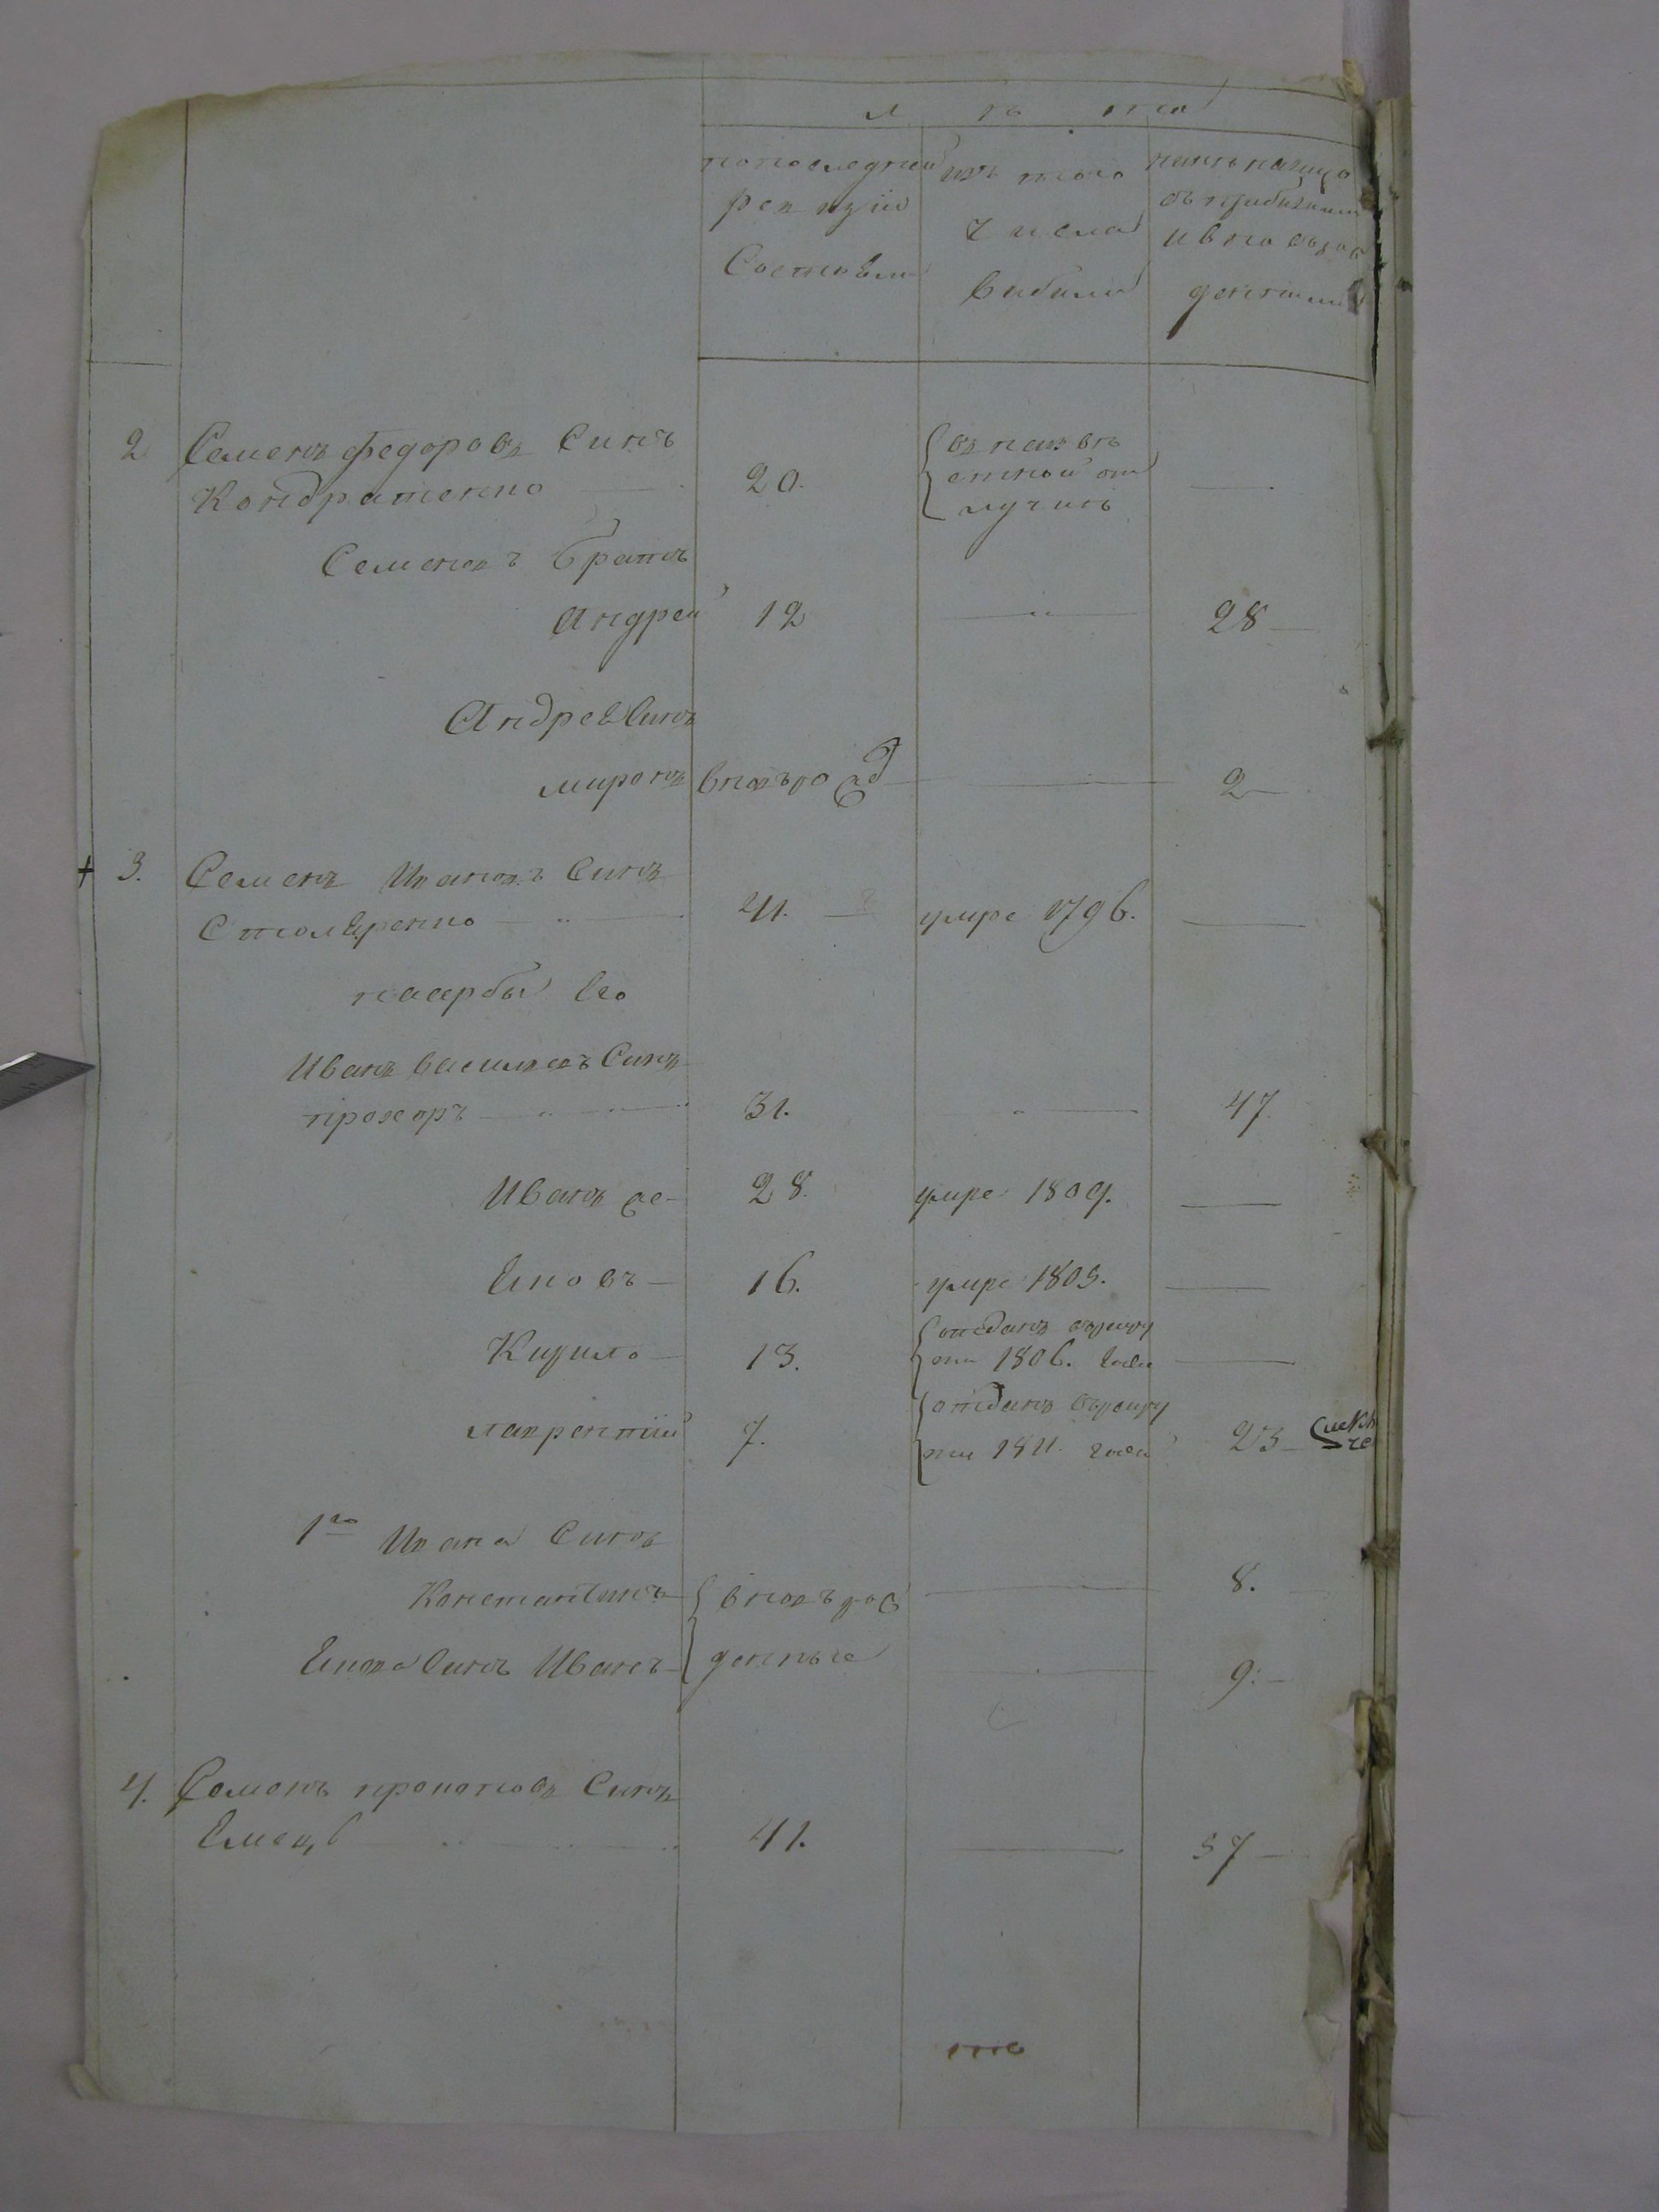 л ѣ та
попоследней
ревизіи
Состояли
изъ того
числа
выбили
ныне налицо
съ прибилими
и вно
денними
2 Семенъ Федоровъ Синъ
Кондратенко — 20. — 
въ неизвѣ
стной от
лучке
Семеновъ братъ
Андрей 12 — 28 —
Андреев Синъ
миронъ вновъ рожд — 2 —
+ 3. Семенъ Ивановъ Синъ
Столяренко — 41. — умре 1796. —
пасербы Его
Иванъ василевъ Синъ
прохоръ — 31. — 47
Иванъ же — 28. умре 1809. —
Яковъ — 16. умре 1805. —
Кирило — 13. отданъ врекру
ти 1806. года —
лаврентій 7. отданъ врекру
ти 1811. года 23 —
1го Ивана Синъ
Константинъ — вновъ рож — 8.
Якова Синъ Иванъ — денные — 9. —
4. Семенъ прокоповъ Синъ
Емецъ — 41. — 57 —